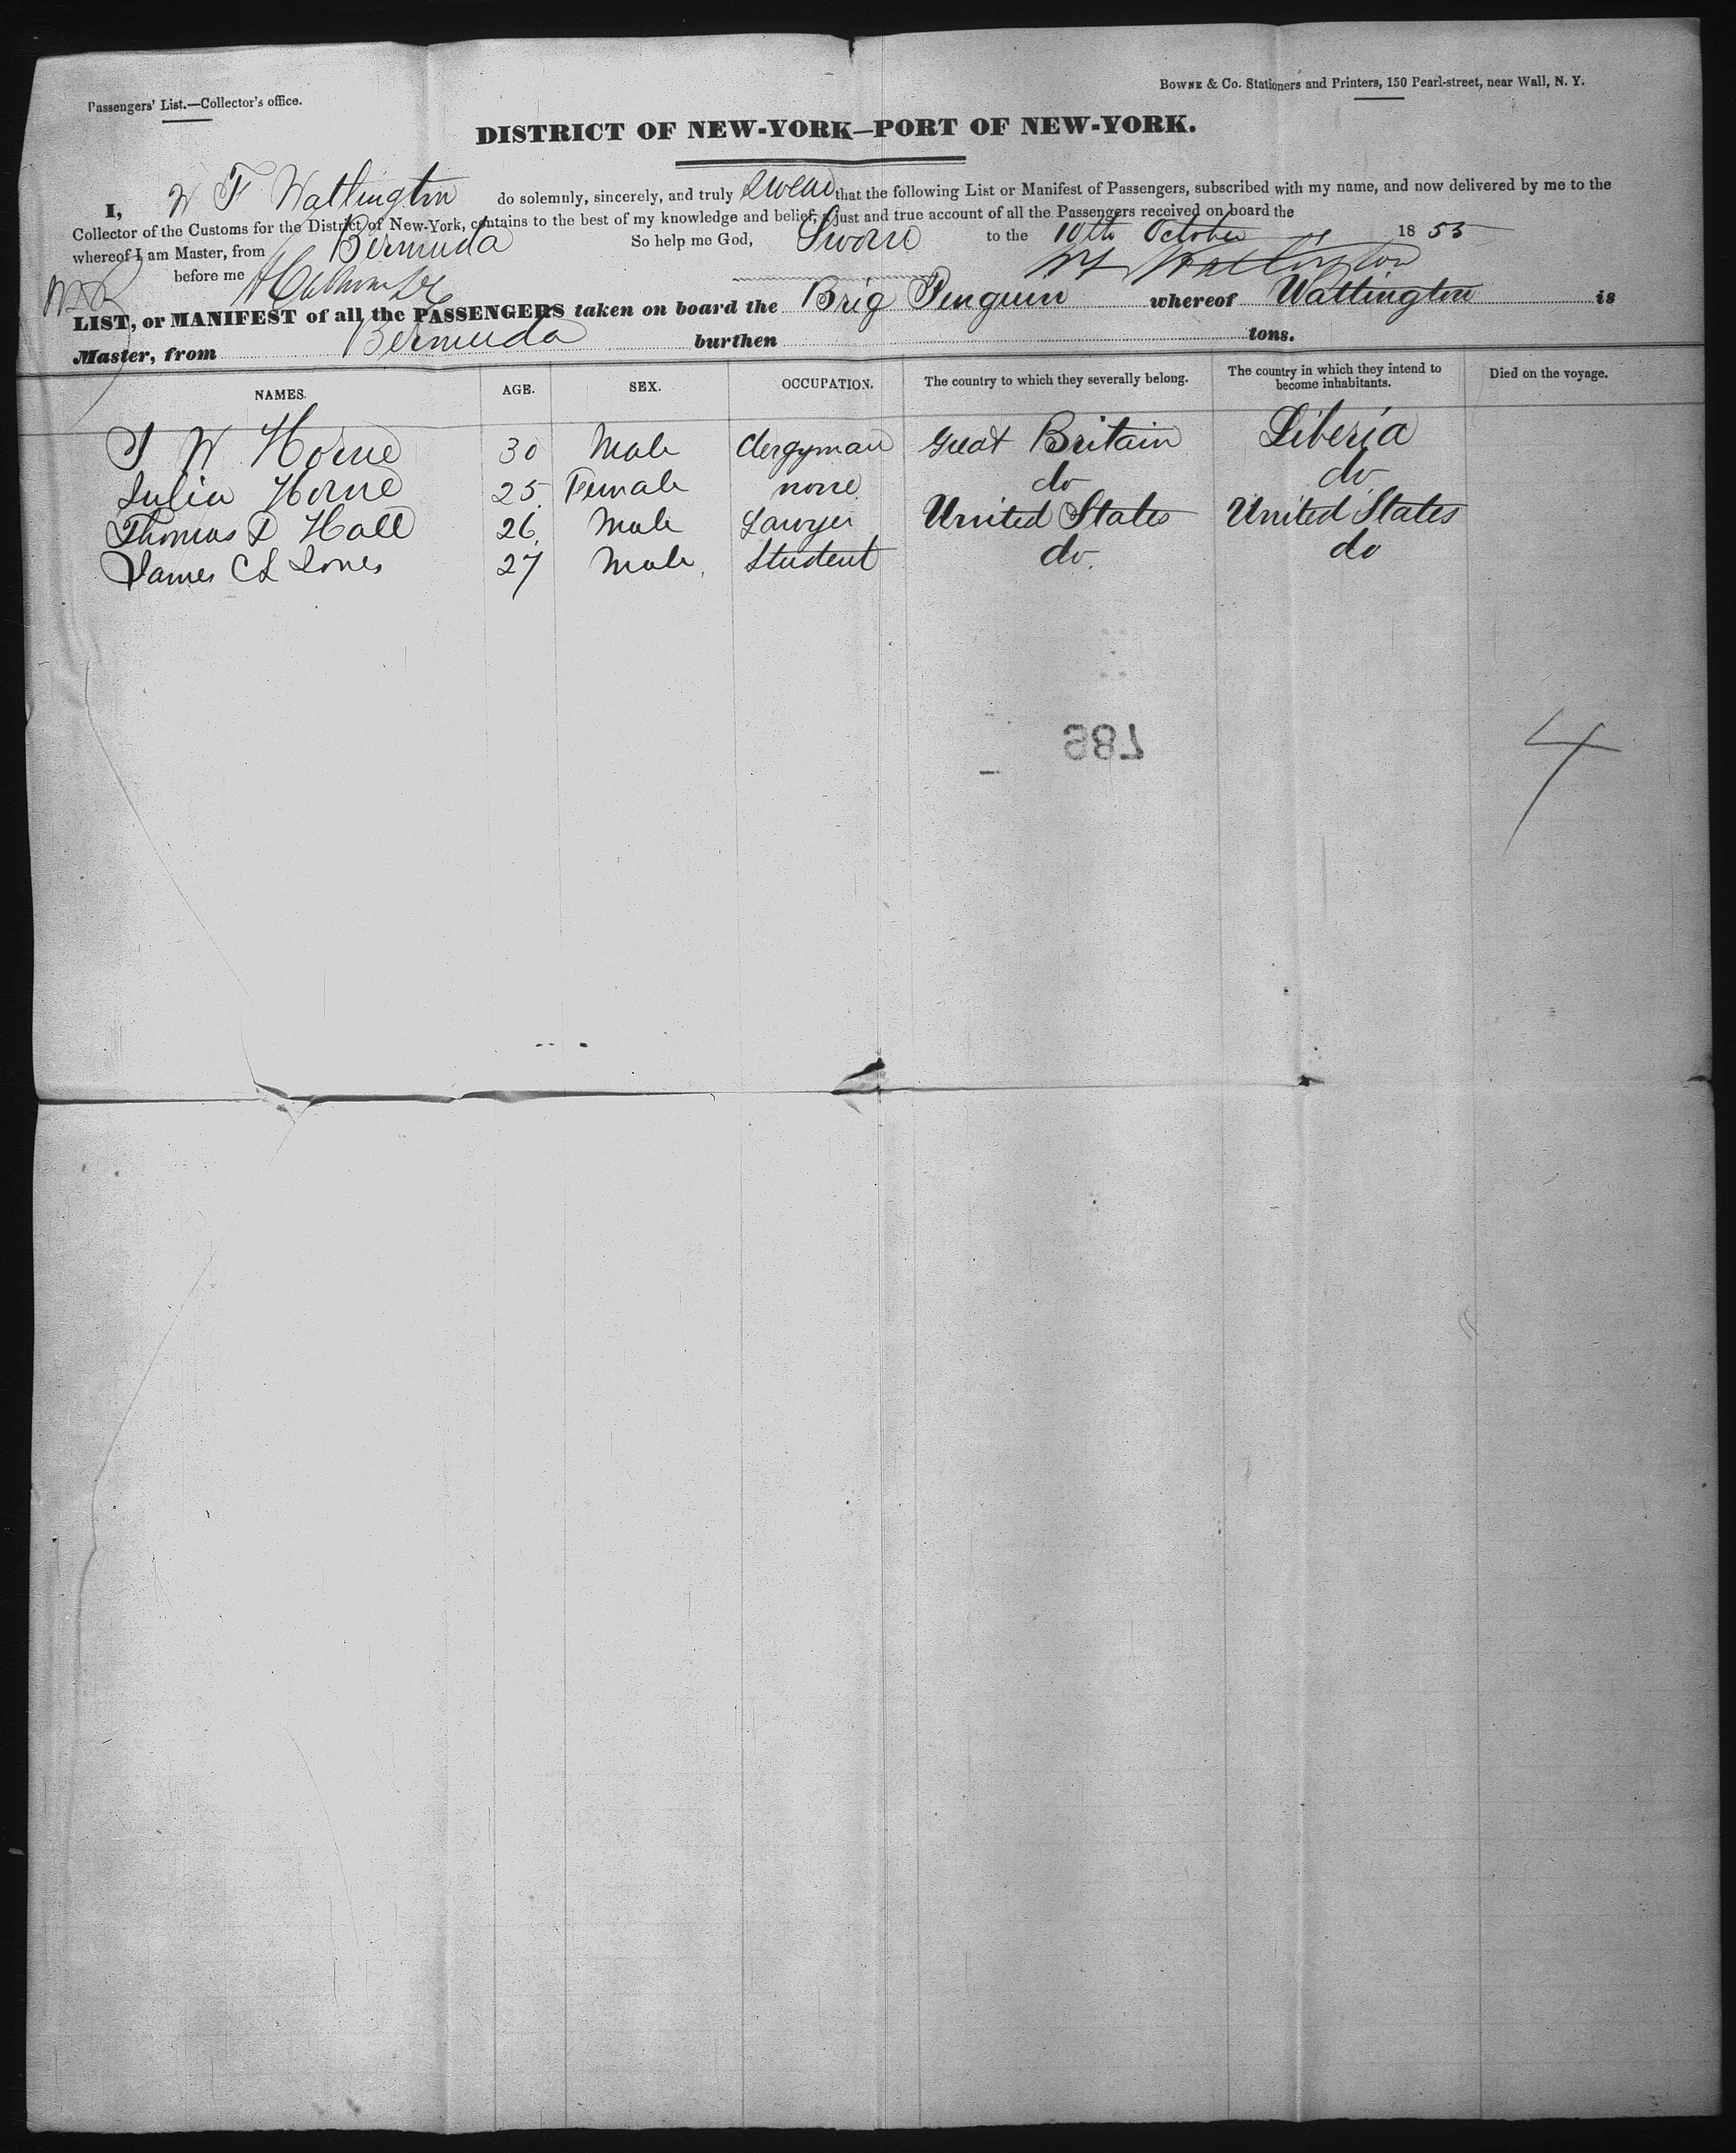 Passengers' List.—Collector's office.
BOWNE & Co. Stationers and Printers, 150 Pearl-street, near Wall, N. Y.
DISTRICT OF NEW-YORK—PORT OF NEW-YORK.
I, W T Watlington do solemnly, sincerely, and truly swear that the following List or Manifest of Passengers, subscribed with my name, and now delivered by me to the
Collector of the Customs for the District of New-York, contains to the best of my knowledge and belief, a just and true account of all the Passengers received on board the
whereof I am Master, from Bermuda So help me God, Sworn to the 10th October 1855
before me Watlington
LIST, or MANIFEST of all the PASSENGERS taken on board the Brig Penguin whereof Watlington is
Master, from Bermuda burthen tons.
NAMES. AGE. SEX. OCCUPATION. The country to which they severally belong. The country in which they intend to become inhabitants. Died on the voyage.
J W Horne 30 Male Clergyman Great Britain Liberia
Julia Horne 25 Female none do do
Thomas D Hall 26 Male Lawyer United States United States
James C S Jones 27 Male Student do do
786
4